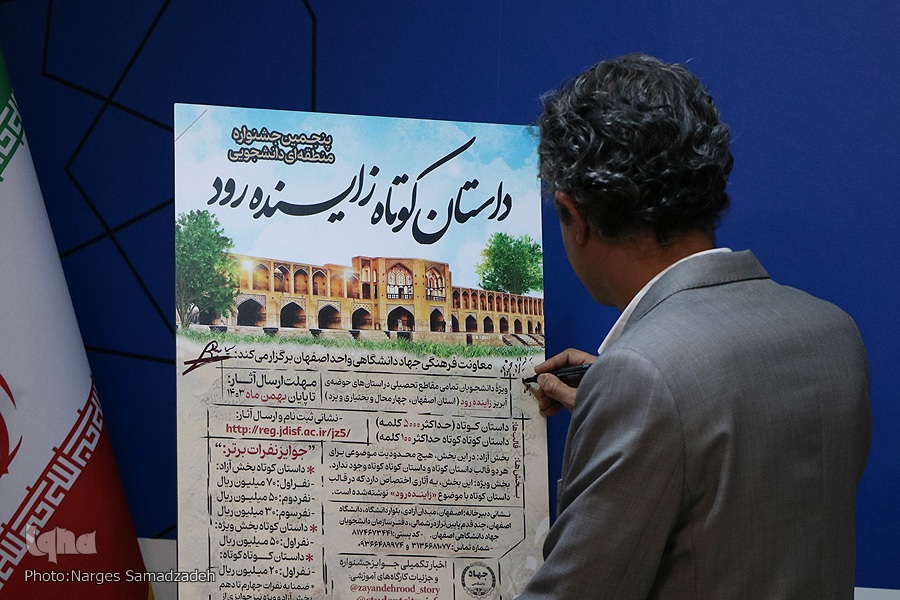 پنجمین جشنواره
منطقه‌ای دانشجویی
داستان کوتاه زاینده رود
معاونت فرهنگی جهاد دانشگاهی واحد اصفهان برگزار می‌کند:
ویژۀ دانشجویان تمامی مقاطع تحصیلی در استان‌های حوضه‌ی
آبریز زاینده رود ( استان اصفهان، چهارمحال و بختیاری و یزد )
مهلت ارسال آثـار:
تا پایان بهمن ماه ۱۴۰۳
داستان کوتاه (حداکثر ۵۰۰۰ کلمه)
داستان کوتاه کوتاه حداکثر ۱۰۰ کلمه)
-نشانی ثبت نام و ارسال آثار:
http://reg.jdisf.ac.ir/jz5/
بخش آزاد: در این بخش، هیچ محدودیت موضوعی برای
هر دو قالب داستان کوتاه و داستان کوتاه کوتاه وجود ندارد.
بخش ویژه: این بخش، به آثاری اختصاص دارد که در قالب
داستان کوتاه با موضوع «زاینده‌رود» نوشته شده است.
نشانی دبیرخانه: اصفهان، میدان آزادی، بلوار دانشگاه، دانشگاه
اصفهان، چند قدم پایین‌تر از در شمالی، دفتر سازمان دانشجویان
جهاد دانشگاهی اصفهان. -کد پستی: ۸۱۷۴۶۷۳۴۴۱
-شماره تماس: ۳۱۳۶۶۸۱۰۷۷ و ۰۹۳۶۶۴۸۹۹۷۴
اخبار تکمیلی جوایز جشنواره
و جزئیات کارگاه‌های آموزشی:
@zayandehrood_story
"جوایز نفرات برتر:"
* داستان کوتاه بخش آزاد:
-نفر اول: ۷۰ میلیون ریال
-نفر دوم: ۵۰ میلیون ریال
-نفر سوم: ۳۰ میلیون ریال
* داستان کوتاه بخش ویژه:
-نفر اول: ۵۰ میلیون ریال
* داستان کوتاه کوتاه:
-نفر اول: ۲۰ میلیون ریال
* ضمنا به نفرات چهارم تا دهم
جهاد
دانشگاهی
iqna
Photo:Narges Samadzadeh